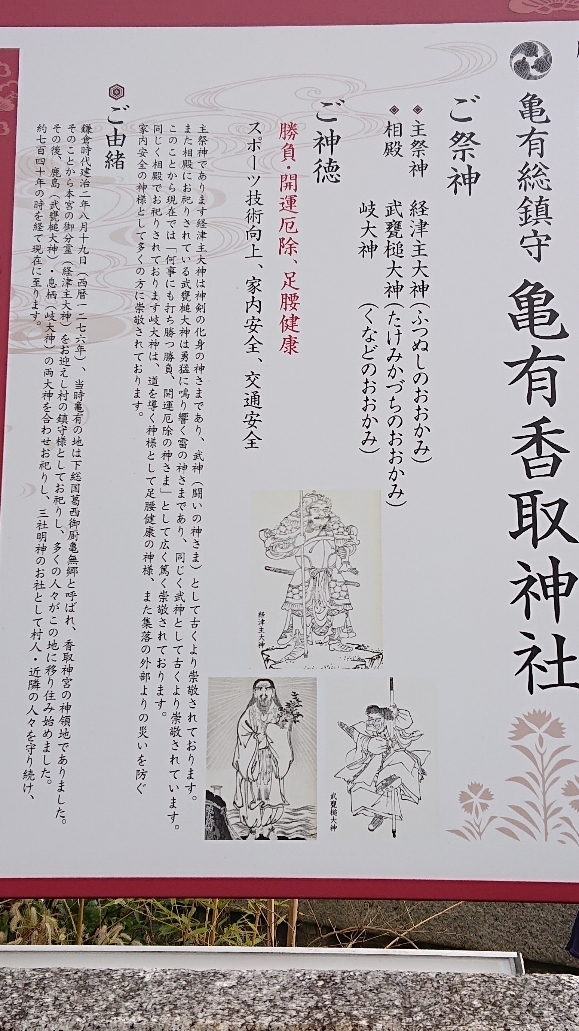 亀有総鎮守 亀有香取神社
ご祭神
主祭神 経津主大神(ふつぬしのおおかみ)
相殿 武甕槌大神(たけみかづちのおおかみ)
岐大神 (くなどのおおかみ)
ご神徳
勝負・開運厄除、足腰健康
スポーツ技術向上、家内安全、交通安全
主祭神であります経津主大神は神剣の化身の神さまであり、武神(闘いの神さま)として古くより崇敬されております。
また相殿にお祀りされている武甕槌大神は勇猛に鳴り響く雷の神さまであり、同じく武神として古くより崇敬されています。
このことから現在では「何事にも打ち勝つ勝負、開運厄除の神さま」として広く篤く崇敬されております。
同じく相殿でお祀りされております岐大神は、道を導く神様として足腰健康の神様、また集落の外部よりの災いを防ぐ
家内安全の神様として多くの方に崇敬されております。
ご由緒
鎌倉時代建治二年八月十九日(西暦一二七六年)、当時亀有の地は下総国葛西御厨亀無郷と呼ばれ、香取神宮の神領地でありました。
そのことから本宮の御分霊(経津主大神)をお迎えし村の鎮守様としてお祀りし、多くの人々がこの地に移り住み始めました。
その後、鹿島(武甕槌大神)・息栖(岐大神)の両大神を合わせお祀りし、三社明神のお社として村人・近隣の人々を守り続け、
約七百四十年の時を経て現在に至ります。
経津主大神
武甕槌大神